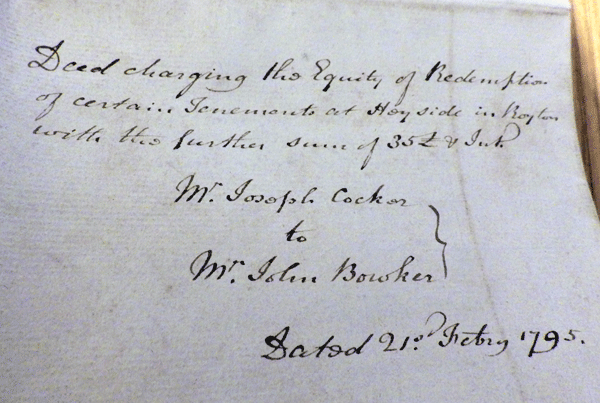 Deed charging the Equity of Redemption
of certain Tenements at Heyside in Royton
with the further sum of 35£ & Int.
Mr. Joseph Cocker
to
Mr. John Bowker
Dated 21st. Febry 1795.